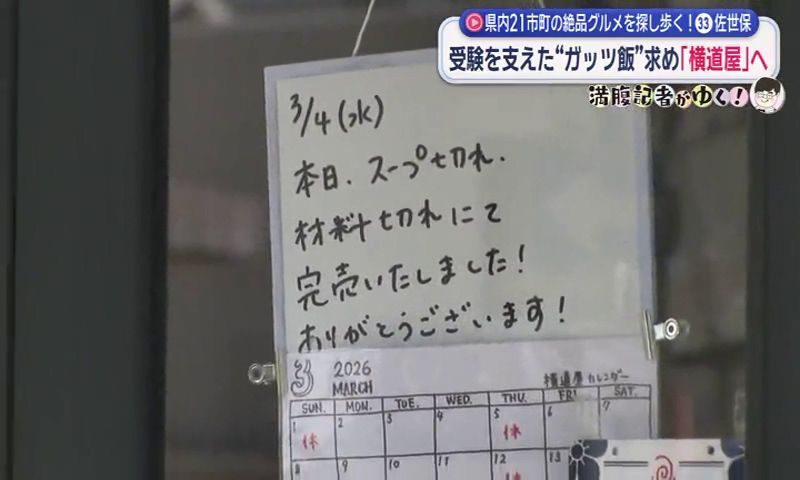 県内21市町の絶品グルメを探し歩く！㉝佐世保
受験を支えた“ガッツ飯”求め「横道屋」へ
満腹記者がゆく！
3/4(水)
本日、スープ切れ、
材料切れにて
完売いたしました！
ありがとうございます！
3 2026 MARCH
横道屋カレンダー
SUN. MON. TUE. WED. THU. FRI SAT.
1 2 3 4 5 6 7
休 休
8 9 10 11 12 13
休